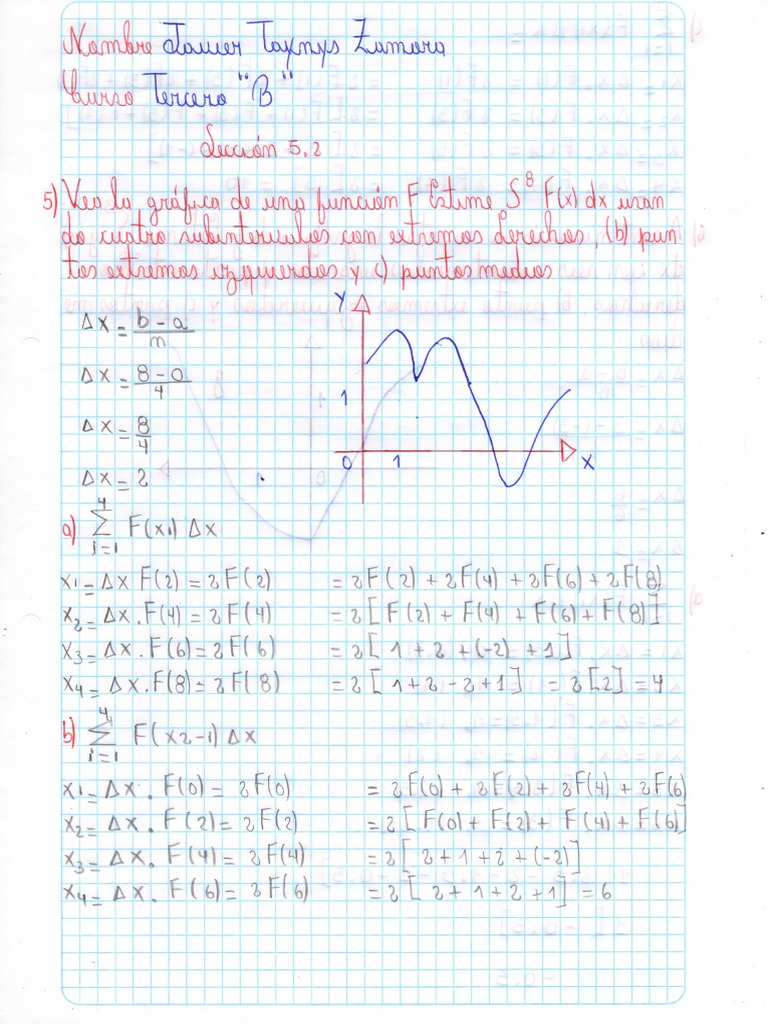 Nombre Javier Taxnys Zamora
Curso Tercero "B"
Lección 5.2
5) Vea la gráfica de una función F Estime S⁸ F(x) dx usan
do cuatro subintervalos con extremos derechos, (b) pun
tos extremos izquierdos y c) puntos medios
Δx = b - a / n
Δx = 8 - 0 / 4
Δx = 8 / 4
Δx = 2
Y
1
0 1 X
a) 4 Σ i=1 F(x1) Δx
x1 = Δx F(2) = 2F(2) = 2F(2) + 2F(4) + 2F(6) + 2F(8)
x2 = Δx . F(4) = 2F(4) = 2[F(2) + F(4) + F(6) + F(8)]
x3 = Δx . F(6) = 2F(6) = 2[1 + 2 + (-2) + 1]
x4 = Δx . F(8) = 2F(8) = 2[1 + 2 - 2 + 1] = 2[2] = 4
b) 4 Σ i=1 F(x2-1) Δx
x1 = Δx . F(0) = 2F(0) = 2F(0) + 2F(2) + 2F(4) + 2F(6)
x2 = Δx . F(2) = 2F(2) = 2[F(0) + F(2) + F(4) + F(6)]
x3 = Δx . F(4) = 2F(4) = 2[2 + 1 + 2 + (-2)]
x4 = Δx . F(6) = 2F(6) = 2[2 + 1 + 2 + 1] = 6